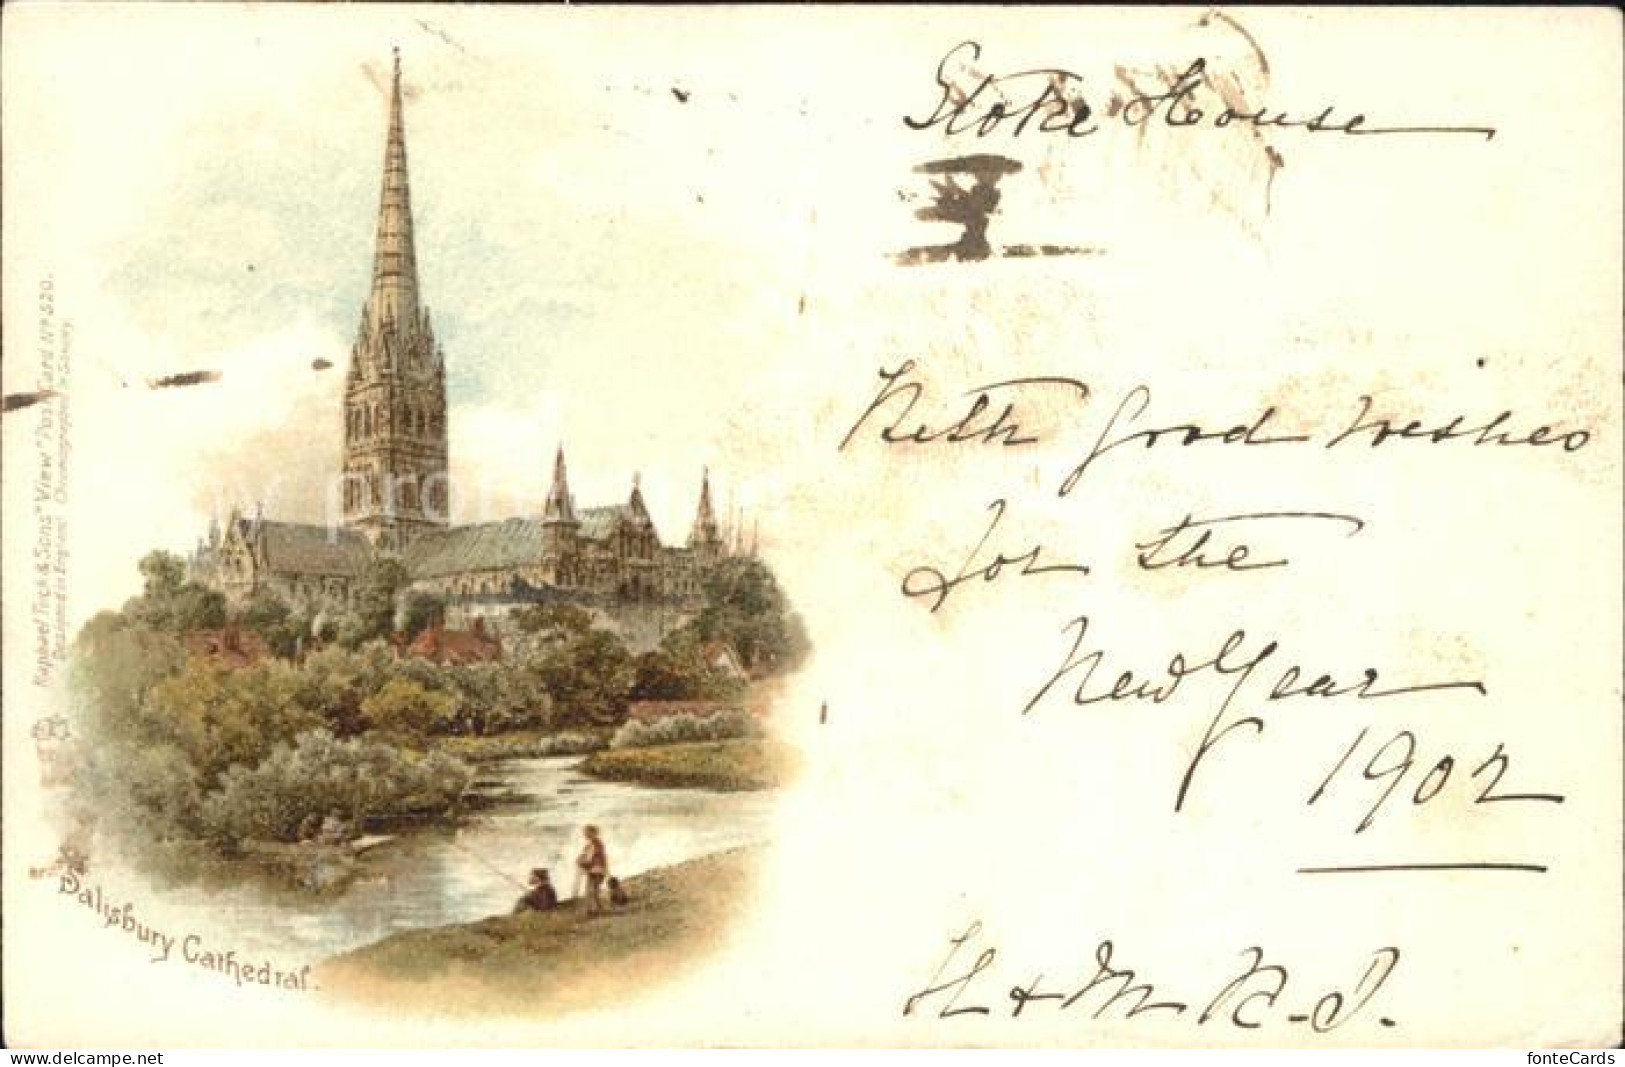 Stoke House
With good wishes
for the
New Year
1902
H & M R-J.
Raphael Tuck & Sons' "View" Post Card Nº 520.
Designed in England. Chromographed in Saxony.
Salisbury Cathedral.
www.delcampe.net
fonteCards